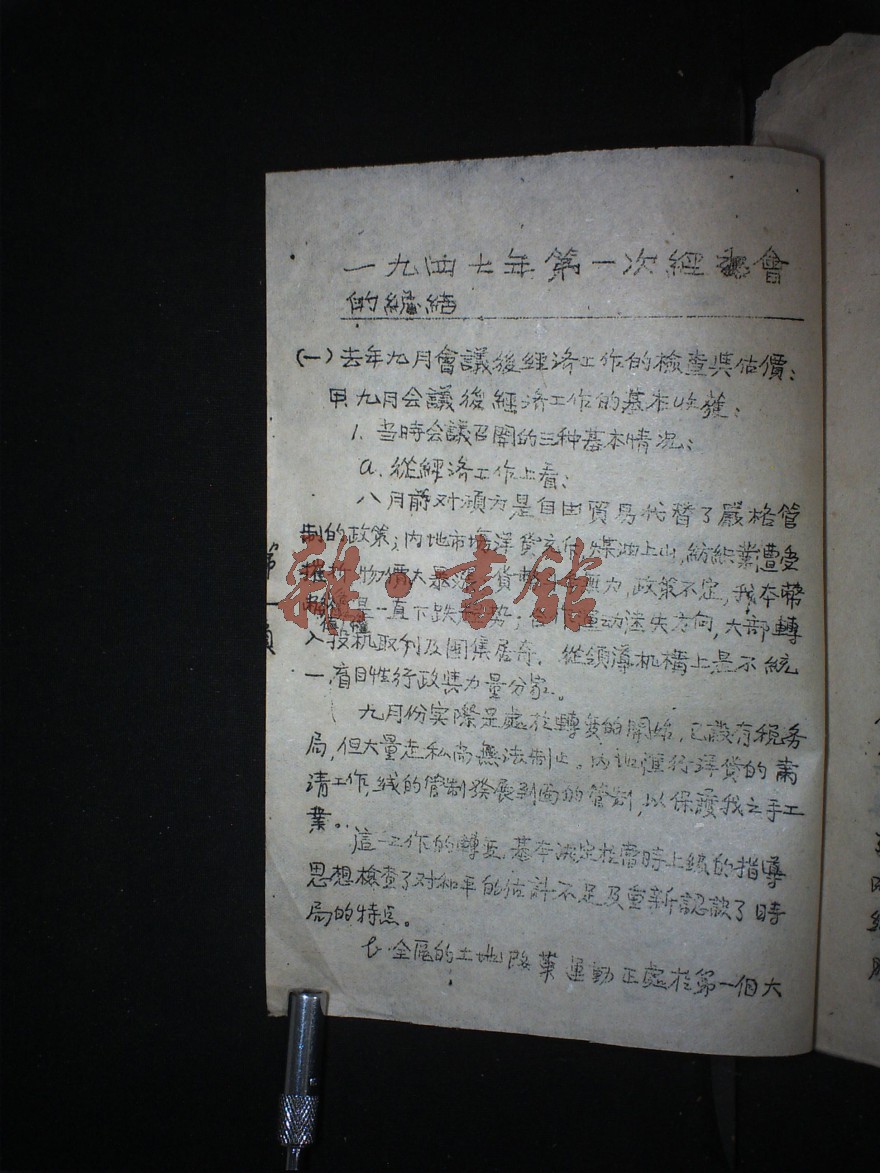 一九四七年第一次經濟會
的總結
(一)去年九月會議後經济工作的檢查與估價:
甲九月会議後經济工作的基本收獲:
1.当時会議召開的三种基本情况:
a.從經济工作上看:
八月前对頑方是自由貿易代替了嚴格管
制的政策;内地市場洋貨充
煤油上山,紡织業遭受
摧
物價大暴漲
無力,政策不定,我本幣
是一直下跌
运动迷失方向,大部轉
入投机取利及囤集居奇.從領導机構上是不統
一盲目性行政與力量分家。
九月份实際是處於轉变的開始,已設有税务
局,但大量走私尚無法制止。内地進行洋貨的肃
请工作,线的管制發展到面的管制,以保護我之手工
業。
這一工作的轉变,基本决定於當時上級的指導
思想檢查了对和平的估計不足及重新認識了時
局的特点。
b.全區的土地改革運動正處於第一個大
第一頁
雜·書館